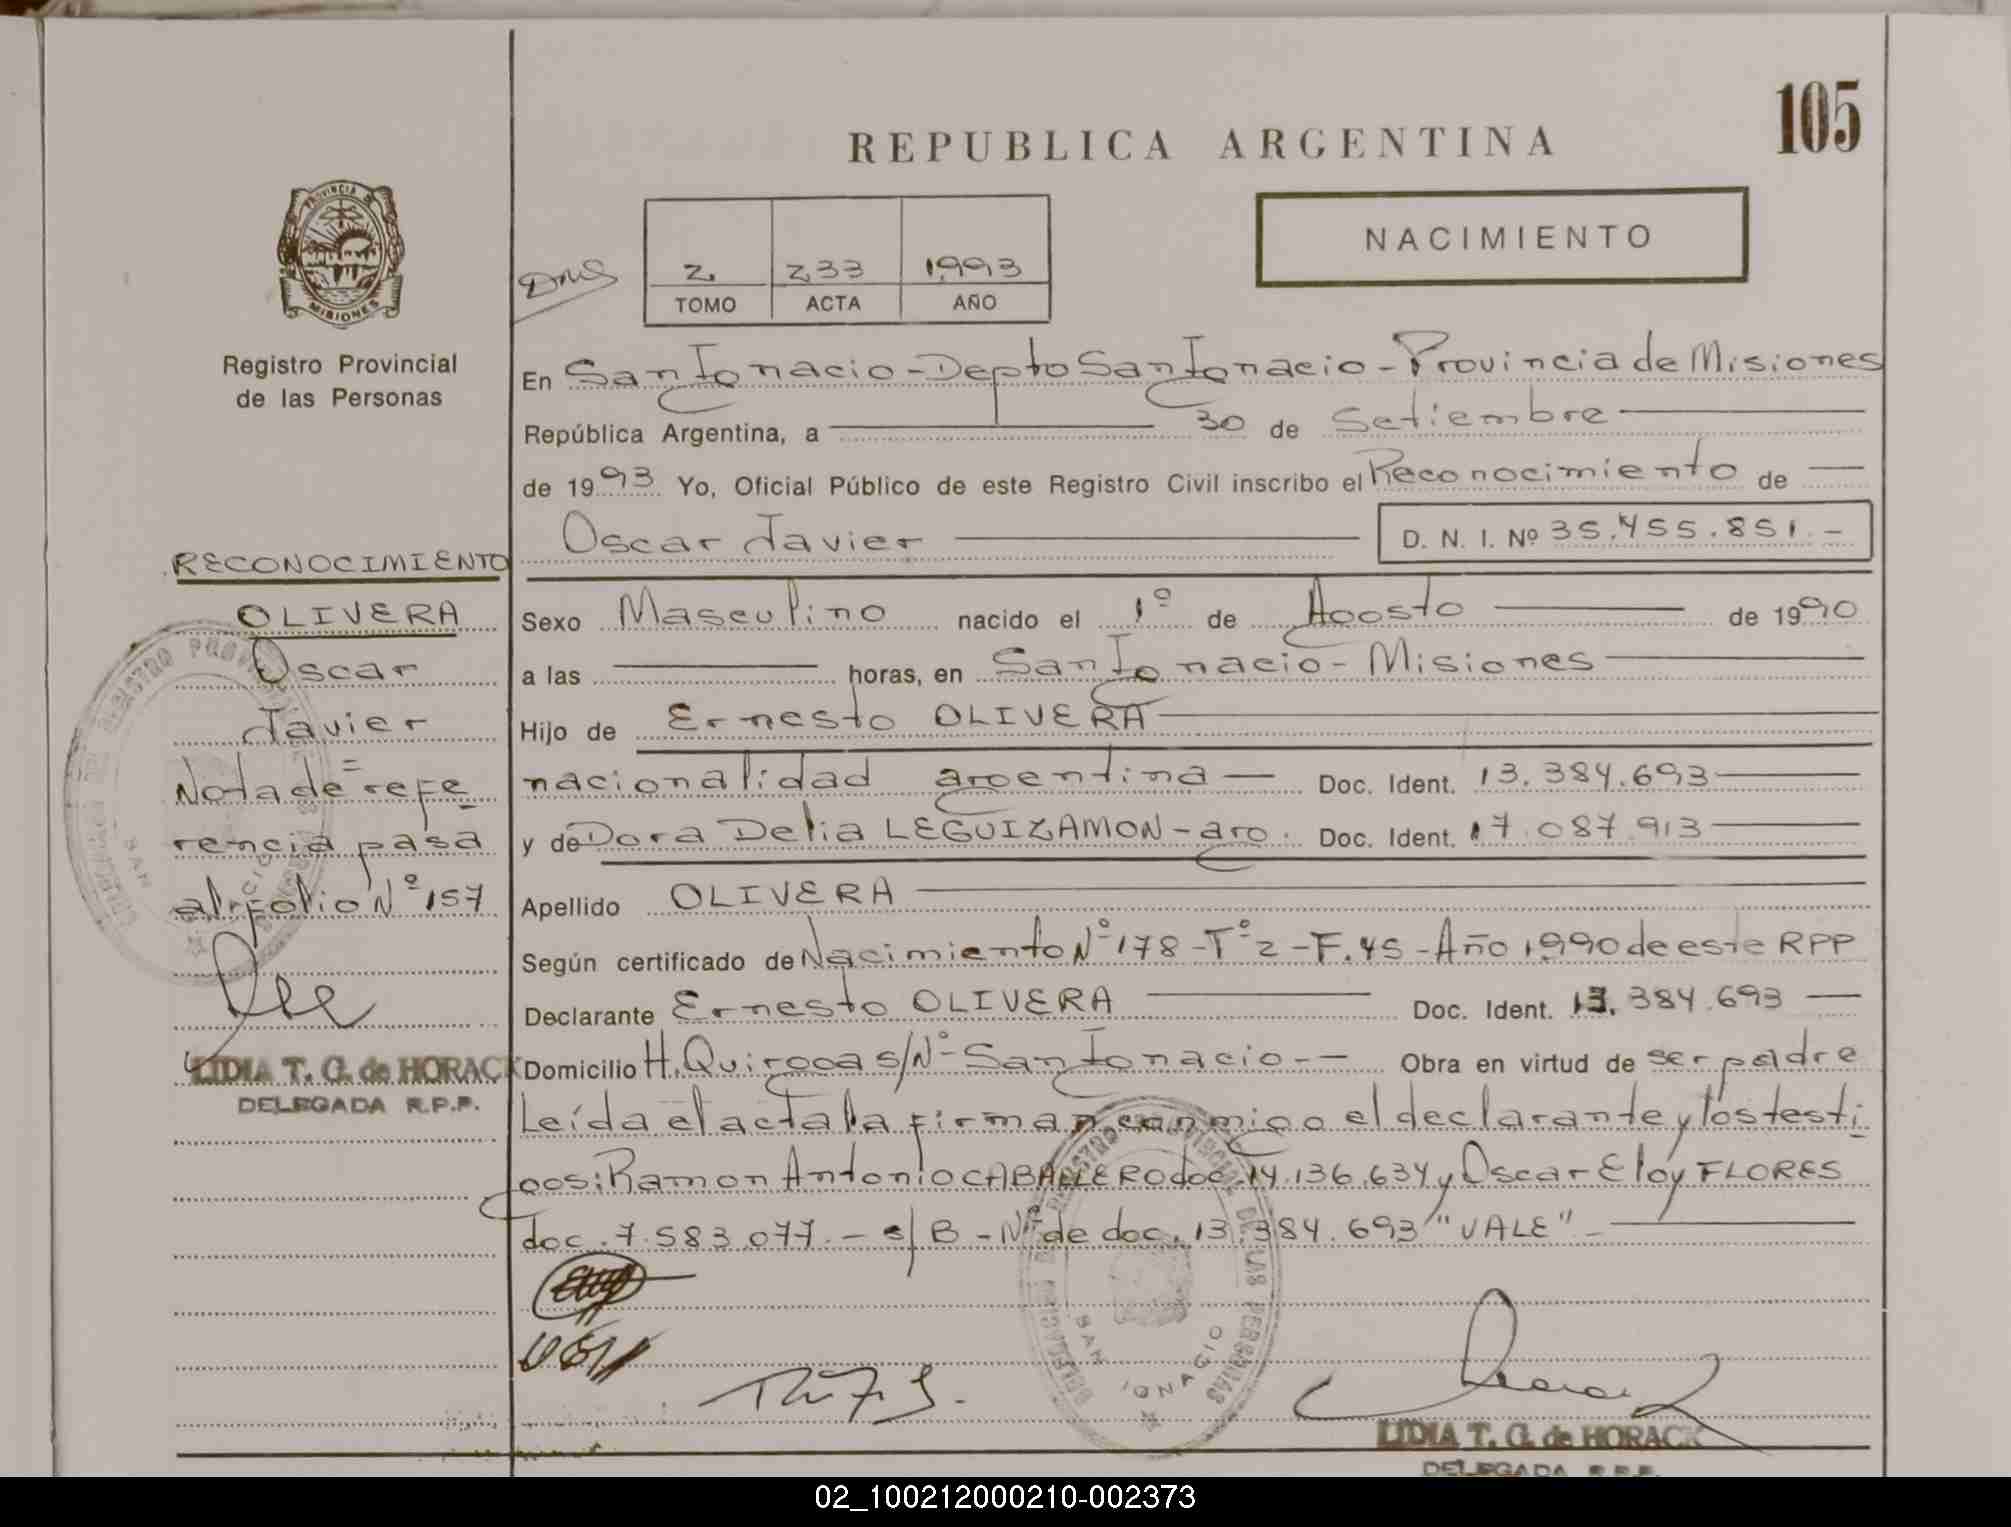 105
REPUBLICA ARGENTINA
NACIMIENTO
PROVINCIA DE MISIONES
Registro Provincial
de las Personas
2. 233 1.993
TOMO ACTA AÑO
En San Ignacio - Depto San Ignacio - Provincia de Misiones
República Argentina, a 30 de Setiembre
de 1993 Yo, Oficial Público de este Registro Civil inscribo el Reconocimiento de
Oscar Javier D. N. I. Nº 35.455.851.-
Sexo Masculino nacido el 1º de Agosto de 1990
a las horas, en San Ignacio - Misiones
Hijo de Ernesto OLIVERA
nacionalidad argentina Doc. Ident. 13.384.693
y de Dora Delia LEGUIZAMON - arg. Doc. Ident. 17.087.913
Apellido OLIVERA
Según certificado de Nacimiento Nº 178 - Tº 2 - F.45 - Año 1.990 de este RPP
Declarante Ernesto OLIVERA Doc. Ident. 13.384.693
Domicilio H. Quiroga s/Nº - San Ignacio - Obra en virtud de ser padre
Leída el acta la firman conmigo el declarante y los testi
gos: Ramon Antonio CABALLERO doc. 14.136.634 y Oscar Eloy FLORES
doc. 7.583.077. - s/B - Nº de doc. 13.384.693 "VALE" -
RECONOCIMIENTO
OLIVERA
Oscar
Javier
=
Nota de refe
rencia pasa
al folio Nº 157
LIDIA T. G. de HORACK
DELEGADA R.P.P.
SAN IGNACIO
LIDIA T. G. de HORACK
DELEGADA R.P.P.
02_100212000210-002373